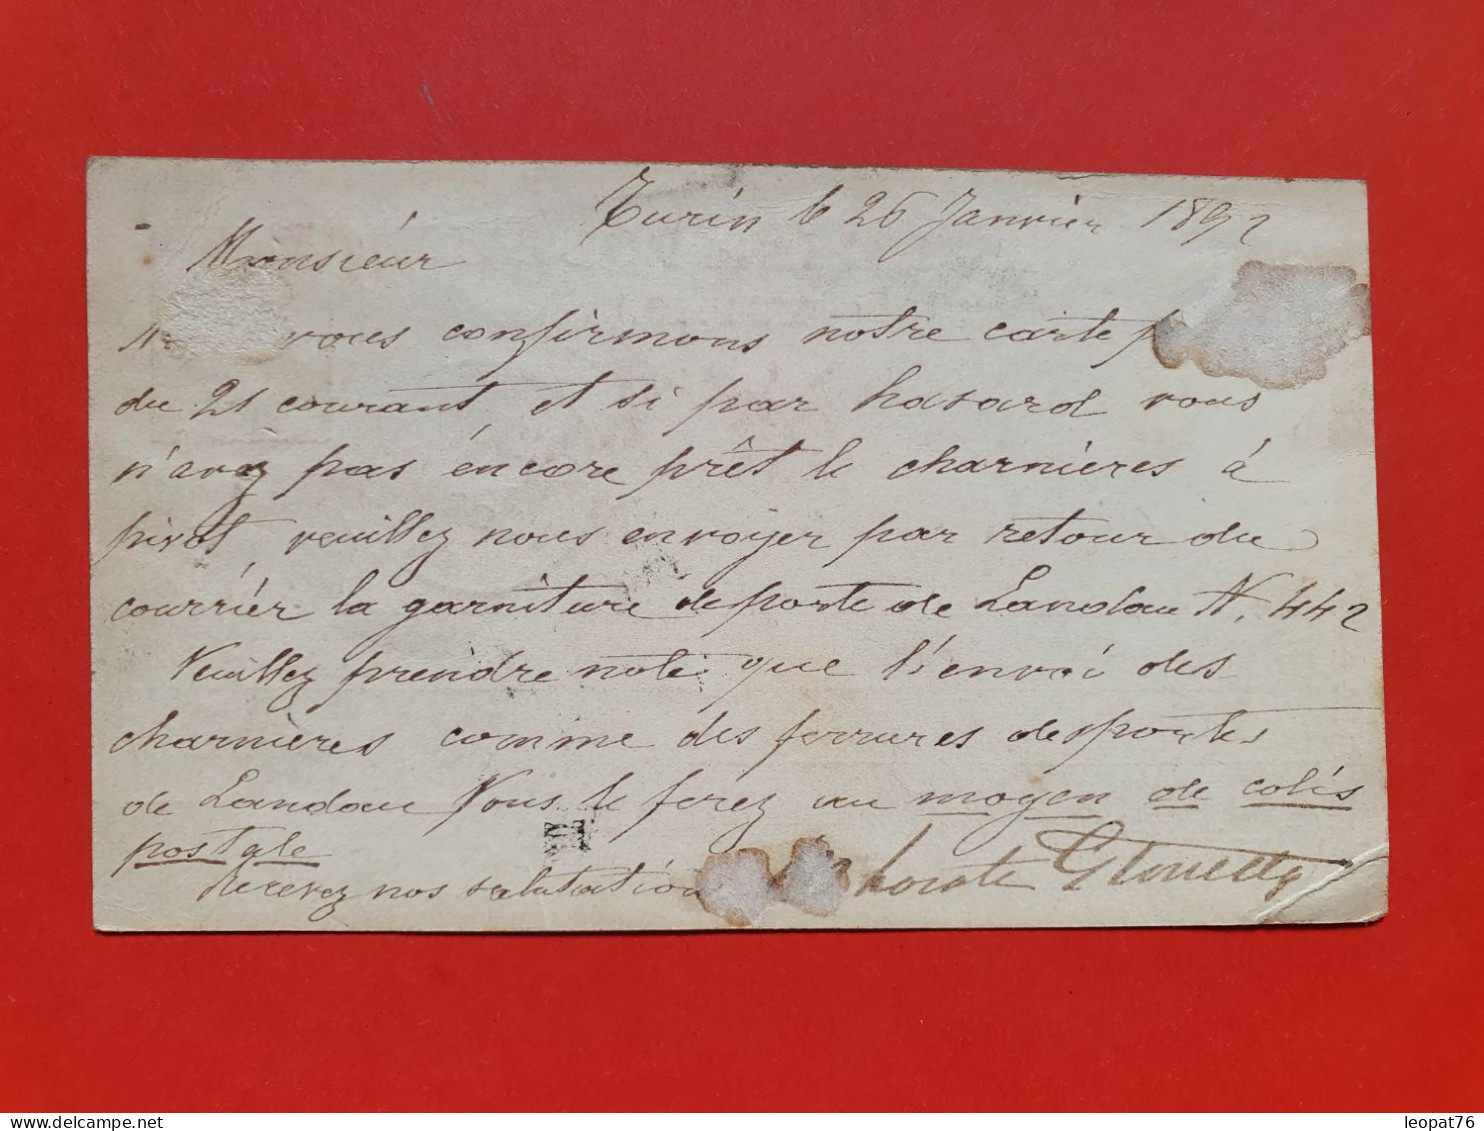 Turin le 26 Janvièr 1892
Monsieúr
vous confirmons notre carte
du 21 courant et si par hasard vous
n'avez pas éncore prêt le charnières á
pivot veuillez nous envoyer par retour du
courrièr la garniture de porte de Landau N. 442
Veuillez prendre note que l'envoi des
charnières comme des ferrures des portes
de Landau Vous le ferez au moyen de colis
postale
Recevez nos salutation
delcampe.net
leopat76